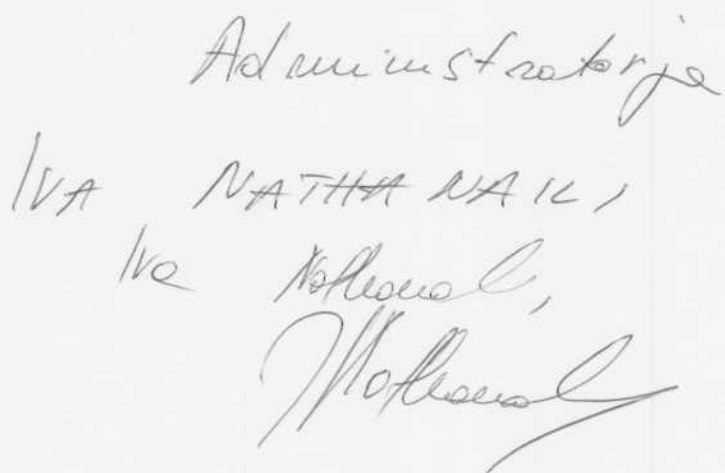 Administratorja
IVA NATHANAILI
Iva Nathanaili